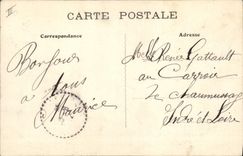 II
CARTE POSTALE
Correspondance
Adresse
Bonjour
à tous
Maurice
Renée Gattault
au Carroir
de Chaumussay
Indre et Loire